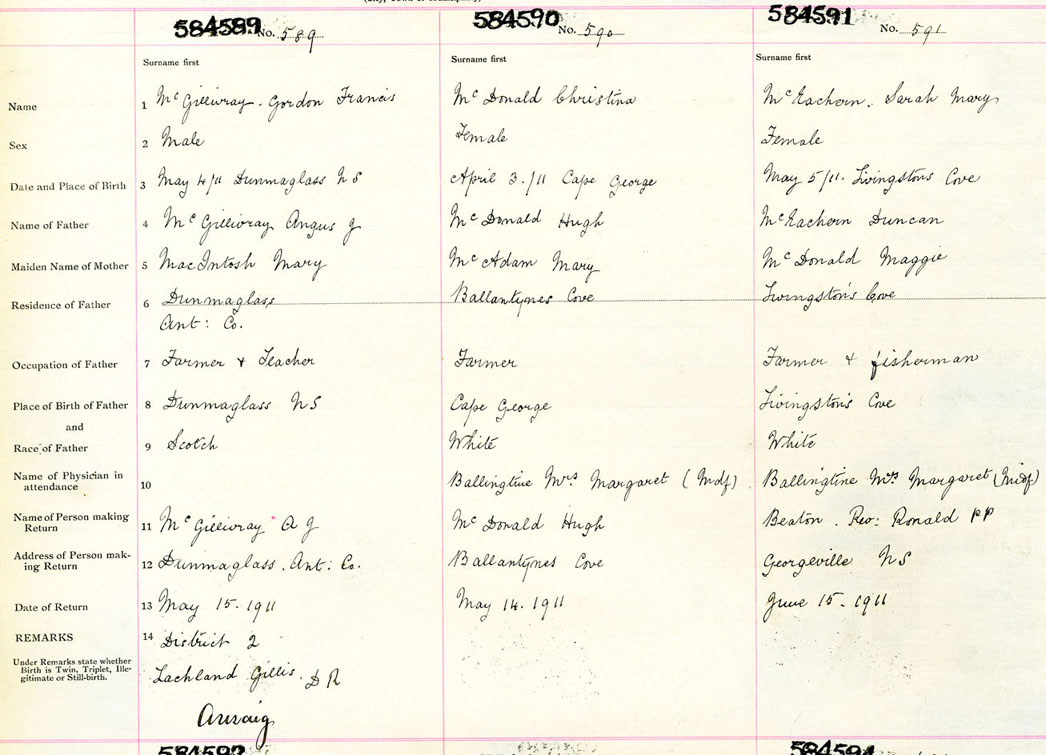 584589 No. 589
584590 No. 590
584591 No. 591
Surname first Surname first Surname first
Name 1 McGillivray. Gordon Francis McDonald Christina McEachern. Sarah Mary
Sex 2 Male Female Female
Date and Place of Birth 3 May 4/11 Dunmaglass NS April 3./11 Cape George May 5/11. Livingstons Cove
Name of Father 4 McGillivray Angus J McDonald Hugh McEachern Duncan
Maiden Name of Mother 5 MacIntosh Mary McAdam Mary McDonald Maggie
Residence of Father 6 Dunmaglass Ballantynes Cove Livingston's Cove
Ant: Co.
Occupation of Father 7 Farmer & Teacher Farmer Farmer & fisherman
Place of Birth of Father 8 Dunmaglass NS Cape George Livingston's Cove
and
Race of Father 9 Scotch White White
Name of Physician in
attendance 10 Ballingtine Mrs Margaret (Mdf) Ballingtine Mrs Margaret (Midf)
Name of Person making
Return 11 McGillivray A J McDonald Hugh Beaton. Rev: Ronald PP
Address of Person mak-
ing Return 12 Dunmaglass. Ant: Co. Ballantynes Cove Georgeville NS
Date of Return 13 May 15. 1911 May 14. 1911 June 15. 1911
REMARKS 14 District 2
Under Remarks state whether
Birth is Twin, Triplet, Ille-
gitimate or Still-birth.
Lachland Gillis. DR
Arisaig